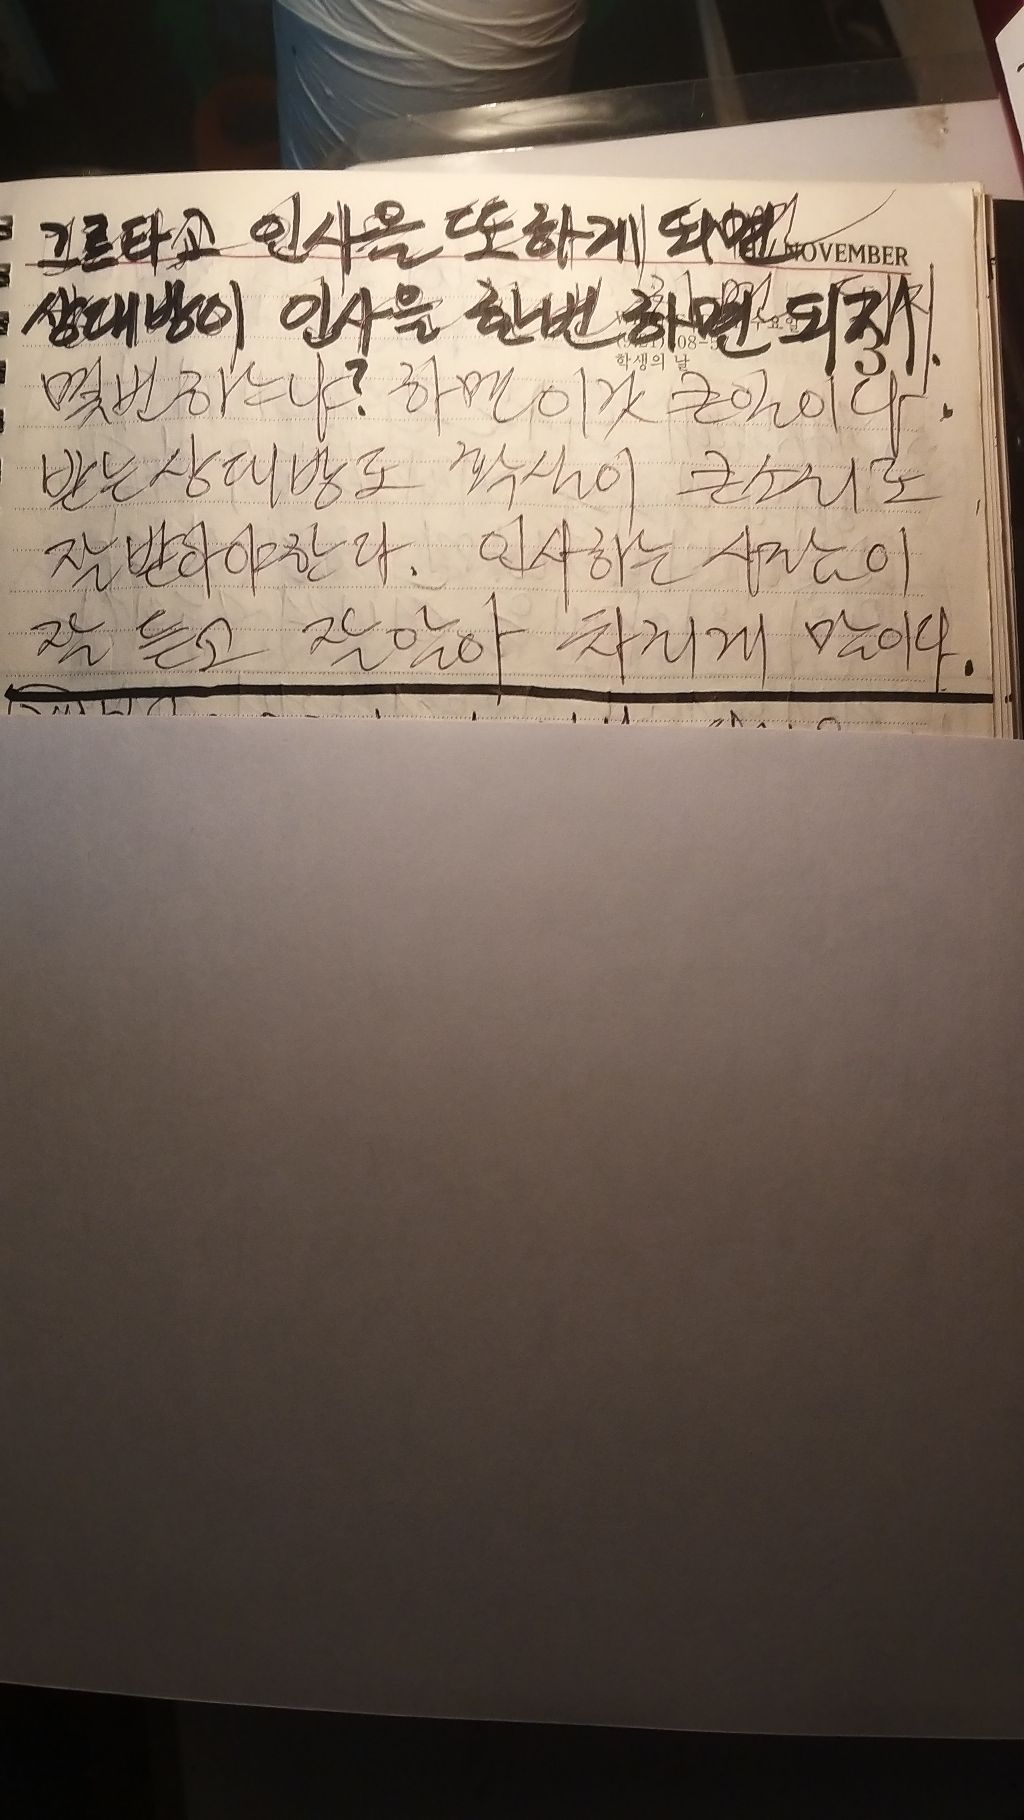 그르타고 인사을 또하게 되면
NOVEMBER
상대방이 인사을 한번 하면 되지.
수요일
08-5
3
학생의 날
몇번하느냐? 하면 이것 큰일이다.
받는상대방도 확실이 큰소리로
잘받아야한다. 인사하는 사람이
잘 듣고 잘알아 차리게 말이다.